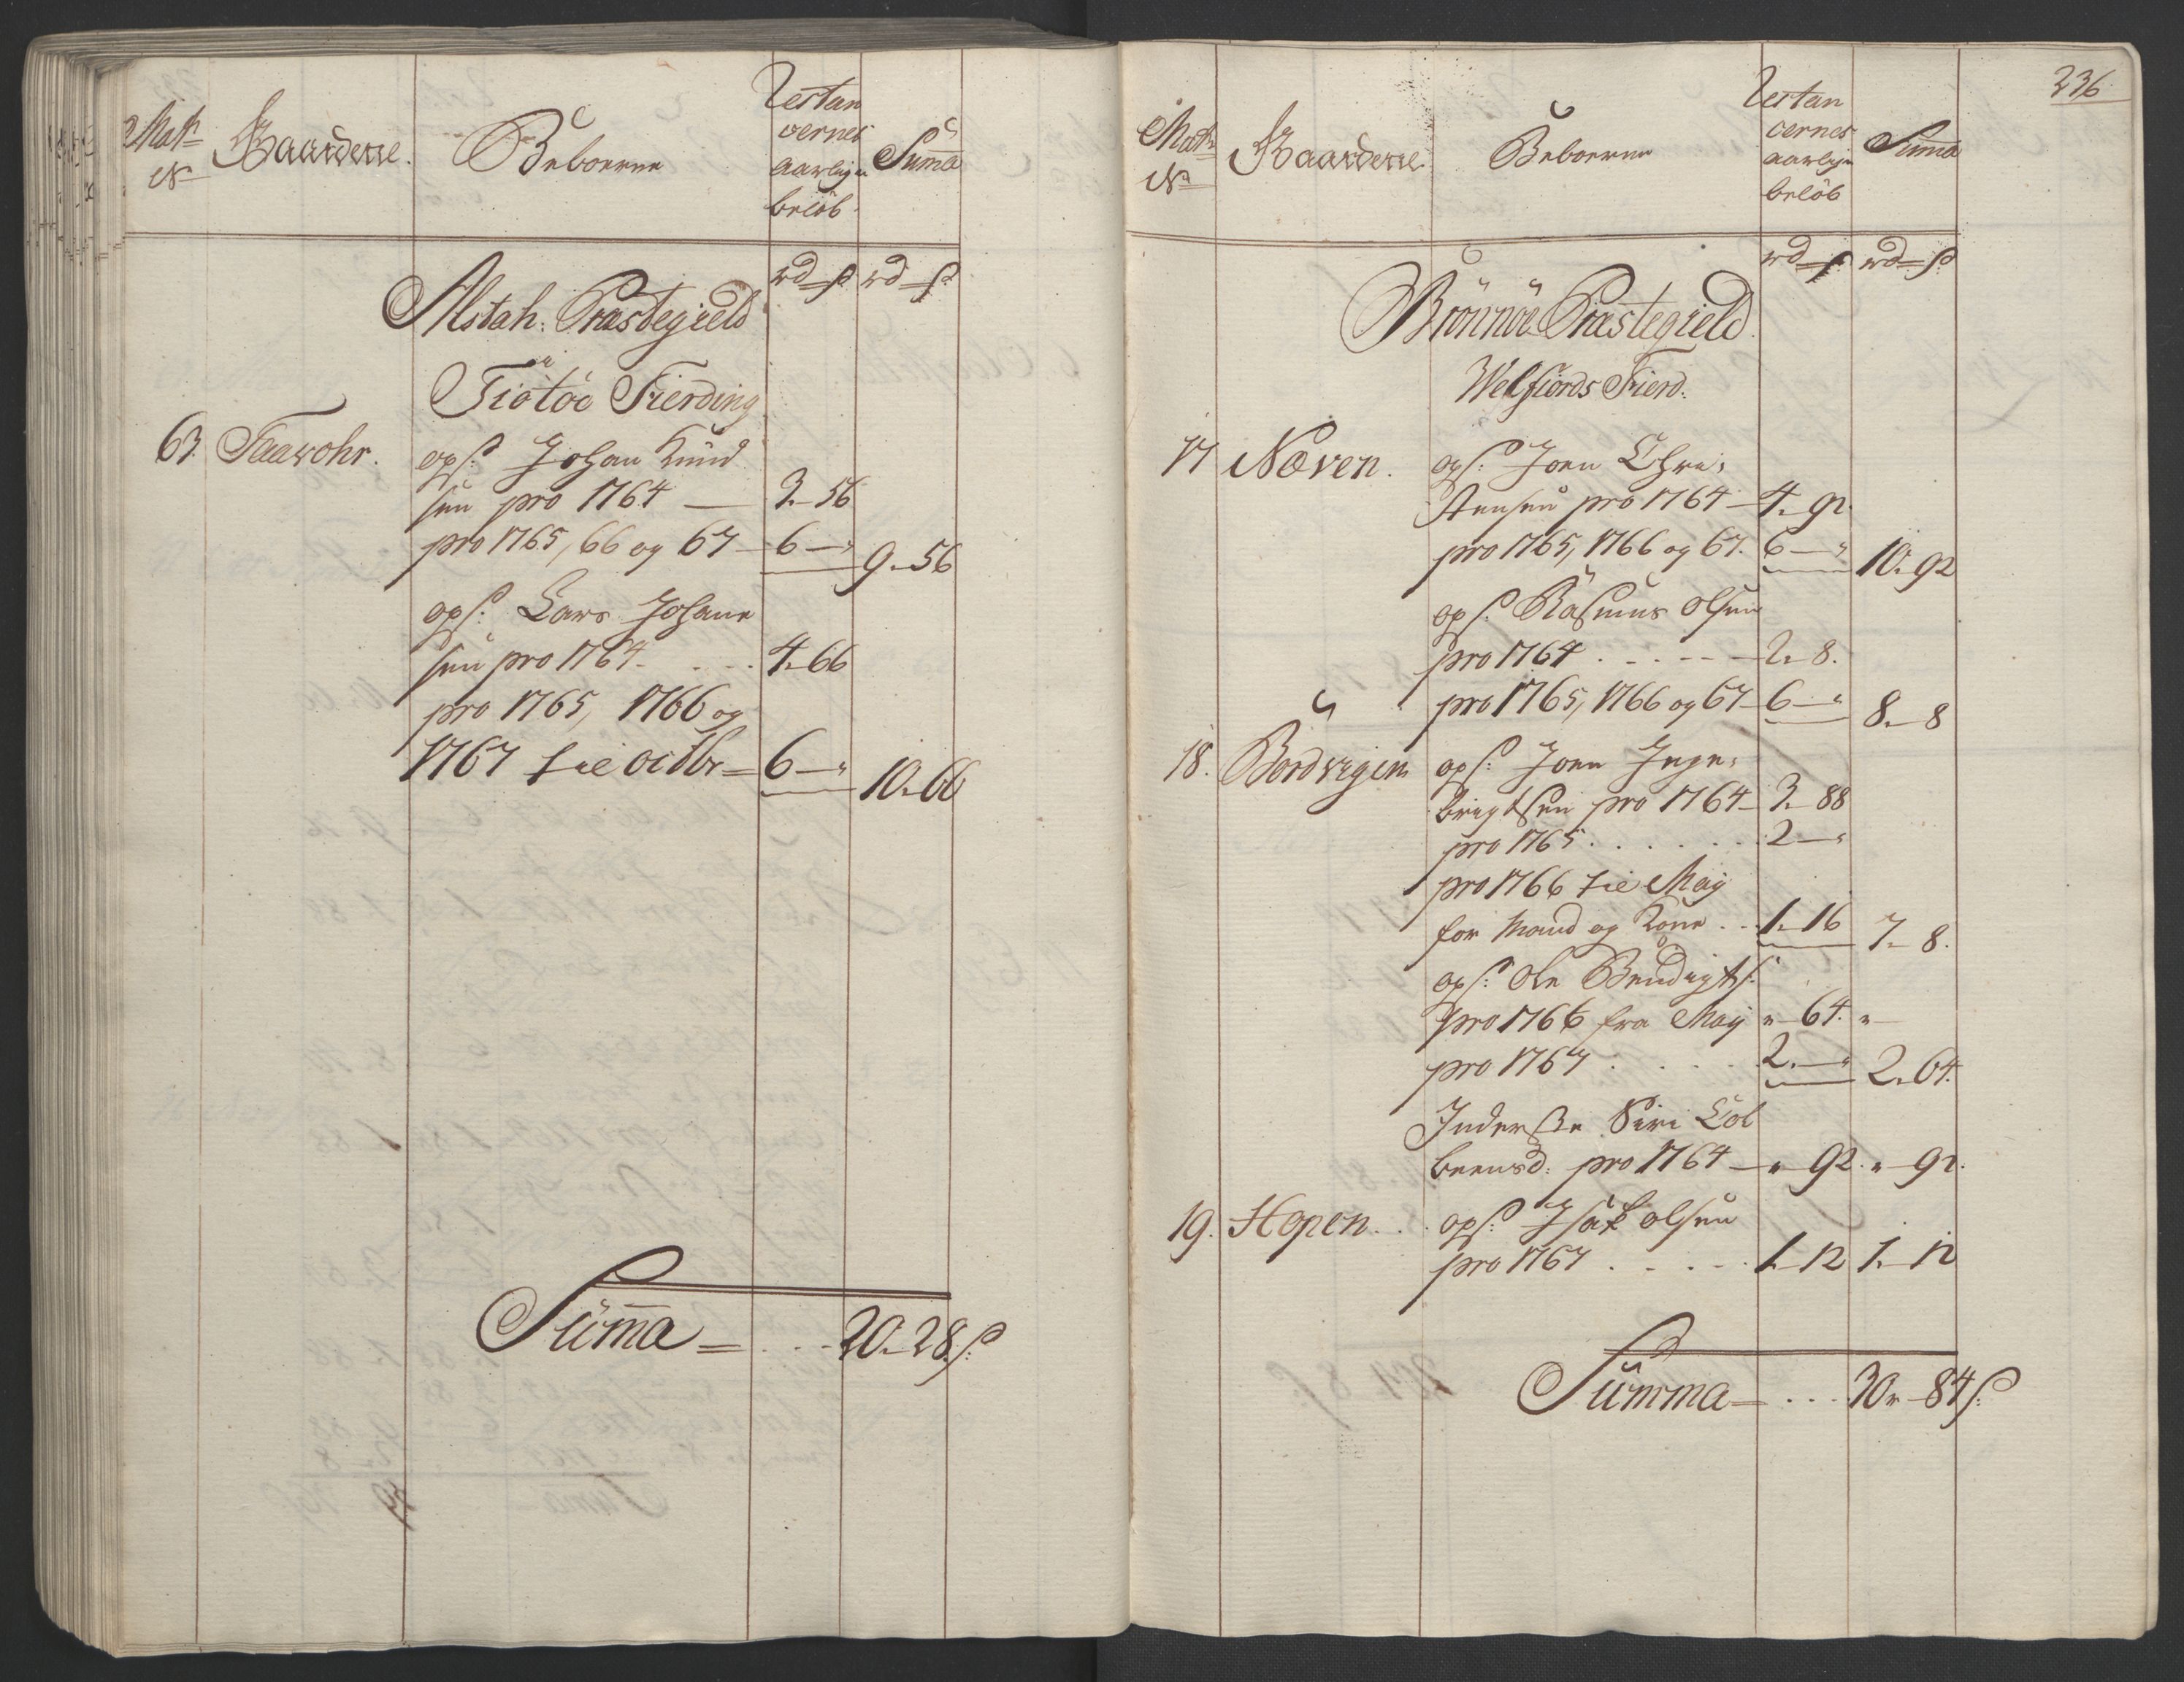 Mat:
No
Gaardene.
Beboerne
Restan
cernes
aarlige
beløb.
Summa
rd ß rd ß
Alstah: Præstegield
Tiötöe Fierding
63. Taarohr.
ops: Johan Knud
sen pro 1764 — 3. 56
pro 1765, 66 og 67 — 6 — " 9. 56
ops: Lars Johann
sen pro 1764. . . . 4. 66
pro 1765, 1766 og
1767 til octbr = 6 — " 10. 66
Summa = . . . 20. 28 ß:
236.
Matr
No
Gaardene.
Beboerne
Restan
cernes
aarlige
beløb
Summa
rd ß rd ß
Brönnöe Præstegield.
Welfiords Fierd:
17 Næven. ops: Joen Chri=
stensen pro 1764 — 4. 92.
pro 1765, 1766 og 67. 6 — " 10. 92
ops: Rasmus Olsen
pro 1764 . . . — 2. 8.
pro 1765, 1766 og 67 — 6 — " 8. 8
18. Bordvigen ops: Joen Inge=
brigtsen pro 1764 — 3. 88
pro 1765. . . . . . 2 — "
pro 1766 til Maÿ
for Mand og Kone . . 1. 16 7. 8.
ops: Ole Bendigts:
pro 1766 fra Maÿ " 64. "
pro 1767 . . . . 2. — " 2. 64.
Inderste Siri Col
beensd: pro 1764 — " 92. " 92.
19. Hopen. . ops: Isak olsen
pro 1767 . . . . 1. 12 1. 12
Summa — . . . 30 " 84 ß: